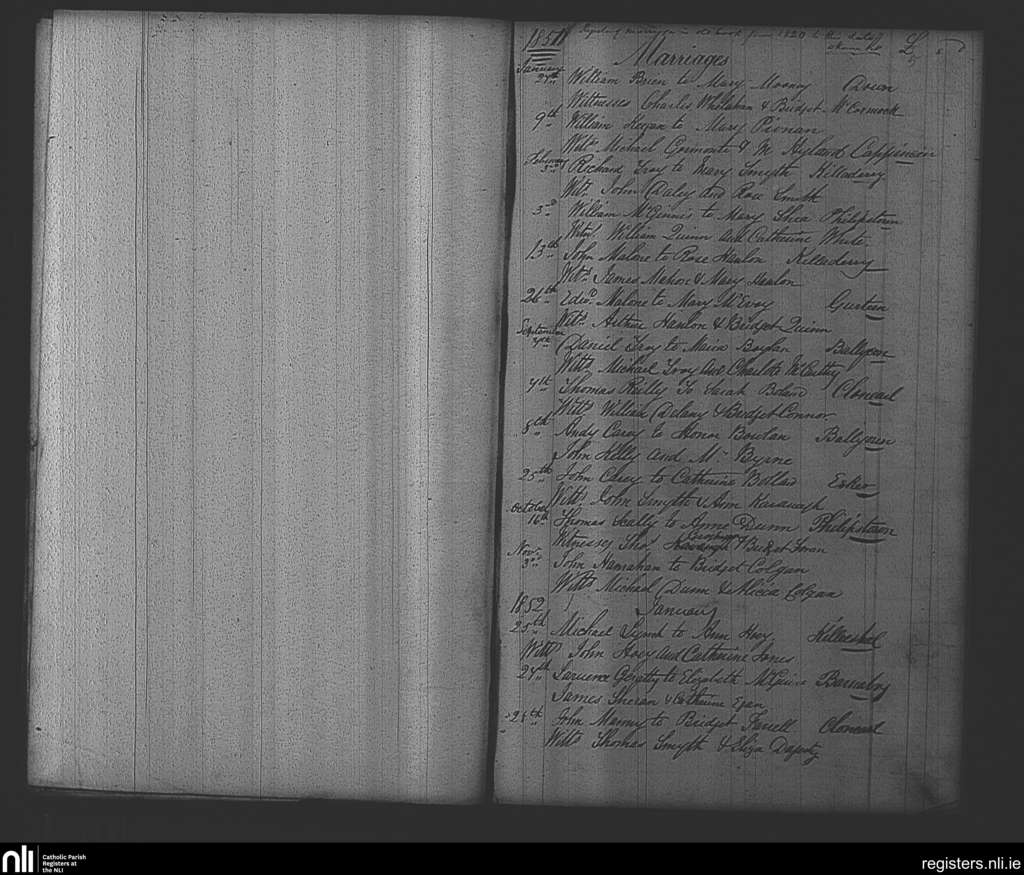 1851 marriages in old book from 1820 to this date
£ s d
Marriages
January
27th William Brien to Mary Mooney Down
Witnesses Charles Whelahan & Bridget McCormack
9th William Keegan to Mary
Witts Michael & M Hyland Cappincur
February
3rd Richard Troy to Mary Smyth Killaderry
Wits John Daley and Rose Smyth
3rd William McGinnis to Mary Shea Philipstown
Witns. William Quinn and Catherine White
13th John Malone to Rose Hanlon Killaderry
Witts James Mahon & Mary Hanlon
26th Edwd. Malone to Mary McEvoy Gurteen
Witts Arthur Hanlon & Bridget Quinn
September
Daniel Troy to Maria Boylan Ballycue
Witts Michael Troy and Charlotte McCarthy
7th Thomas Reilly To Sarah Boland Clonearl
Witts William Delany & Bridget Connor
8th Andy Carey to Honor Bowlan Ballycue
John Kelly and M Byrne
25th John Carey to Catherine Esker
Witts John Smyth & Ann Kavanagh
October
16th Thomas Scally to Anne Dunn Philipstown
Witnesses Thos. Kavanagh & Bridget
Novr.
3rd John Hanrahan to Bridget Colgan
Witts Michael Dunn & Alicia Colgan
1852 January
25th Michael Lynch to Ann Hoey
Witts John Hoey and Catherine Jones
27th Laurence Geraghty to Elizabeth McGuire Barnaboy
James Sheran & Catherine Egan
28th John Manny to Bridget Farrell Clonearl
Witts Thomas Smyth & Eliza
nli
Catholic Parish
Registers at
the NLI
registers.nli.ie